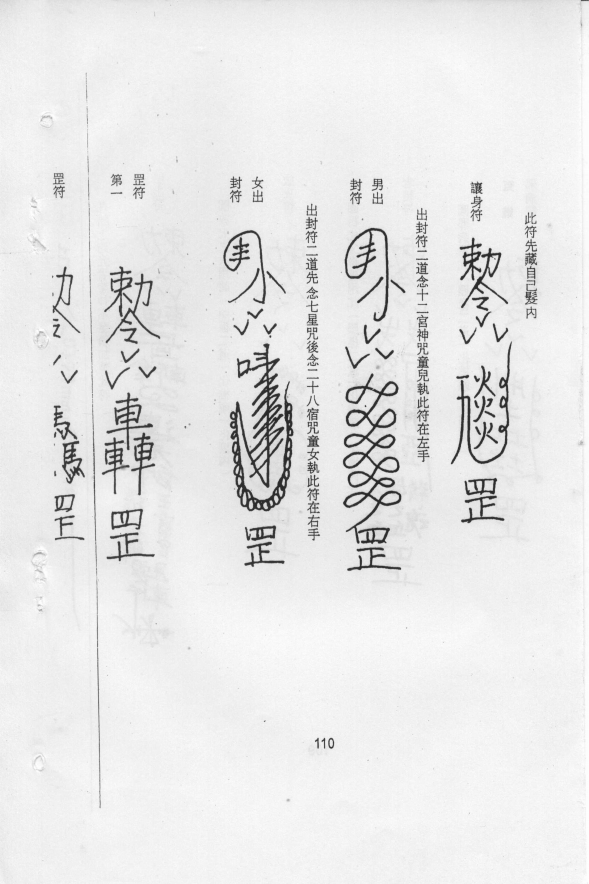 此符先藏自己髮內
讓身符
勅令
罡
出封符二道念十二宮神咒童兒執此符在左手
男出
封符
罡
出封符二道先念七星咒後念二十八宿咒童女執此符在右手
女出
封符
罡
罡符
第一
勅令
車轉
罡
罡符
罡
110